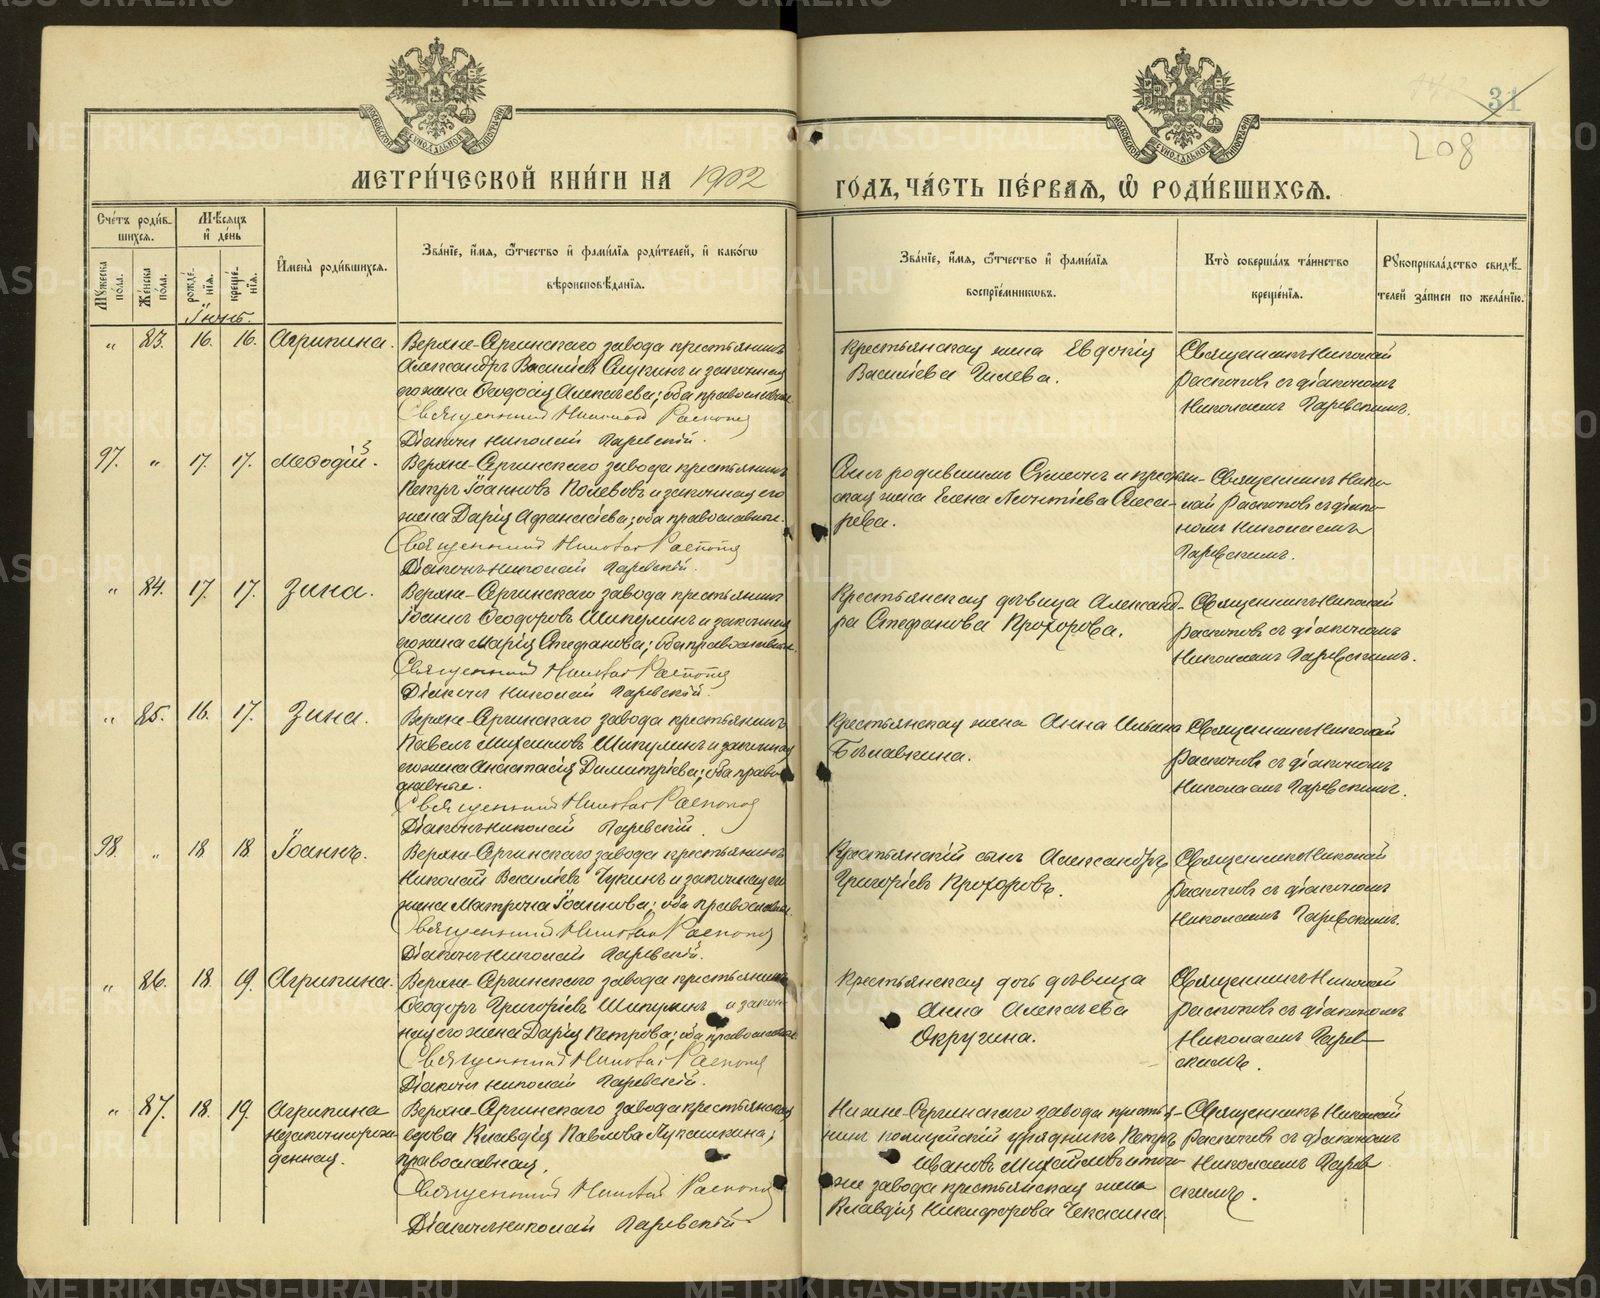 МЕТРИ́ЧЕСКОЙ КНИ́ГИ НА 1902
ГО́ДЪ, ЧА́СТЬ ПЕ́РВАѦ, Ѡ҆ РОДИ́ВШИХСѦ.
31
208
Сче́тъ роди́в-
шихсѧ.
Мужеска по́ла.
Же́нска по́ла.
Мѣсѧцъ
и҆ де́нь
рожде́-
нїѧ.
креще́-
нїѧ.
Іюнь.
И҆мена̀ роди́вшихсѧ.
Зва́нїе, и҆́мѧ, ѻ҆́тчество и҆ фами́лїѧ роди́телей, и҆ како́гѡ
вѣроисповѣ́данїѧ.
Зва́нїе, и҆́мѧ, ѻ҆́тчество и҆ фами́лїѧ
воспрїе́мникѡвъ.
Кто̀ соверша́лъ та́инство
креще́нїѧ.
Рꙋкоприкла́дство свидѣ́-
телей за́писи по жела́нїю.
" 83. 16. 16. Агрипина.
Верхне-Сергинскаго завода крестьянинъ
Александръ Василіевъ и законная
его жена Ѳеодосія Алексѣева; оба православные
Священникъ Николай Распоповъ
Діаконъ Николай Паревскій.
Крестьянская жена Евдокія
Василіева Гилева.
Священникъ Николай
Распоповъ съ діакономъ
Николаемъ Паревскимъ.
97. " 17. 17. Меѳодій.
Верхне-Сергинскаго завода крестьянинъ
Петръ Іоанновъ Полевовъ и законная его
жена Дарія Аѳанасіева; оба православные.
Священникъ Николай Распоповъ
Діаконъ Николай Паревскій.
Симеонъ и крестьян-
ская жена Елена Леонтіева
рева.
Священникъ Нико-
лай Распоповъ съ діако-
номъ Николаемъ
Паревскимъ.
" 84. 17. 17. Зина.
Верхне-Сергинскаго завода крестьянинъ
Іоаннъ Ѳеодоровъ Шипулинъ и законная
его жена Марія Стефанова; оба православные.
Священникъ Николай Распоповъ
Діаконъ Николай Паревскій.
Крестьянская дѣвица Александ-
ра Стефанова Прохорова.
Священникъ Николай
Распоповъ съ діакономъ
Николаемъ Паревскимъ.
" 85. 16. 17. Зина.
Верхне-Сергинскаго завода крестьянинъ
Павелъ Михаиловъ Шипулинъ и законная
его жена Анастасія Димитріева; оба право-
славные.
Священникъ Николай Распоповъ
Діаконъ Николай Паревскій.
Крестьянская жена Анна Ильина
Булавкина.
Священникъ Николай
Распоповъ съ діакономъ
Николаемъ Паревскимъ.
98. " 18 18 Іоаннъ.
Верхне-Сергинскаго завода крестьянинъ
Николай Василіевъ Чукинъ и законная его
жена Матрона Іоаннова; оба православные.
Священникъ Николай Распоповъ
Діаконъ Николай Паревскій.
Крестьянскій сынъ Александръ
Григоріевъ Прохоровъ.
Священникъ Николай
Распоповъ съ діакономъ
Николаемъ Паревскимъ.
" 86. 18. 19. Агрипина.
Верхне-Сергинскаго завода крестьянинъ
Ѳеодоръ Григоріевъ Шипулинъ и закон-
ная его жена Дарія Петрова; оба православные.
Священникъ Николай Распоповъ
Діаконъ Николай Паревскій.
Крестьянская дочь дѣвица
Анна Алексѣева
Округина.
Священникъ Николай
Распоповъ съ діакономъ
Николаемъ Парев-
скимъ.
" 87. 18. 19. Агрипина
незаконнорож-
денная.
Верхне-Сергинскаго завода крестьянская
вдова Клавдія Павлова Лукашкина;
православная.
Священникъ Николай Распоповъ
Діаконъ Николай Паревскій.
Нижне-Сергинскаго завода крестья-
нинъ полицейскій урядникъ Петръ
Ивановъ Михайловъ и того-
же завода крестьянская жена
Клавдія Никифорова Чекасина.
Священникъ Николай
Распоповъ съ діакономъ
Николаемъ Парев-
скимъ.